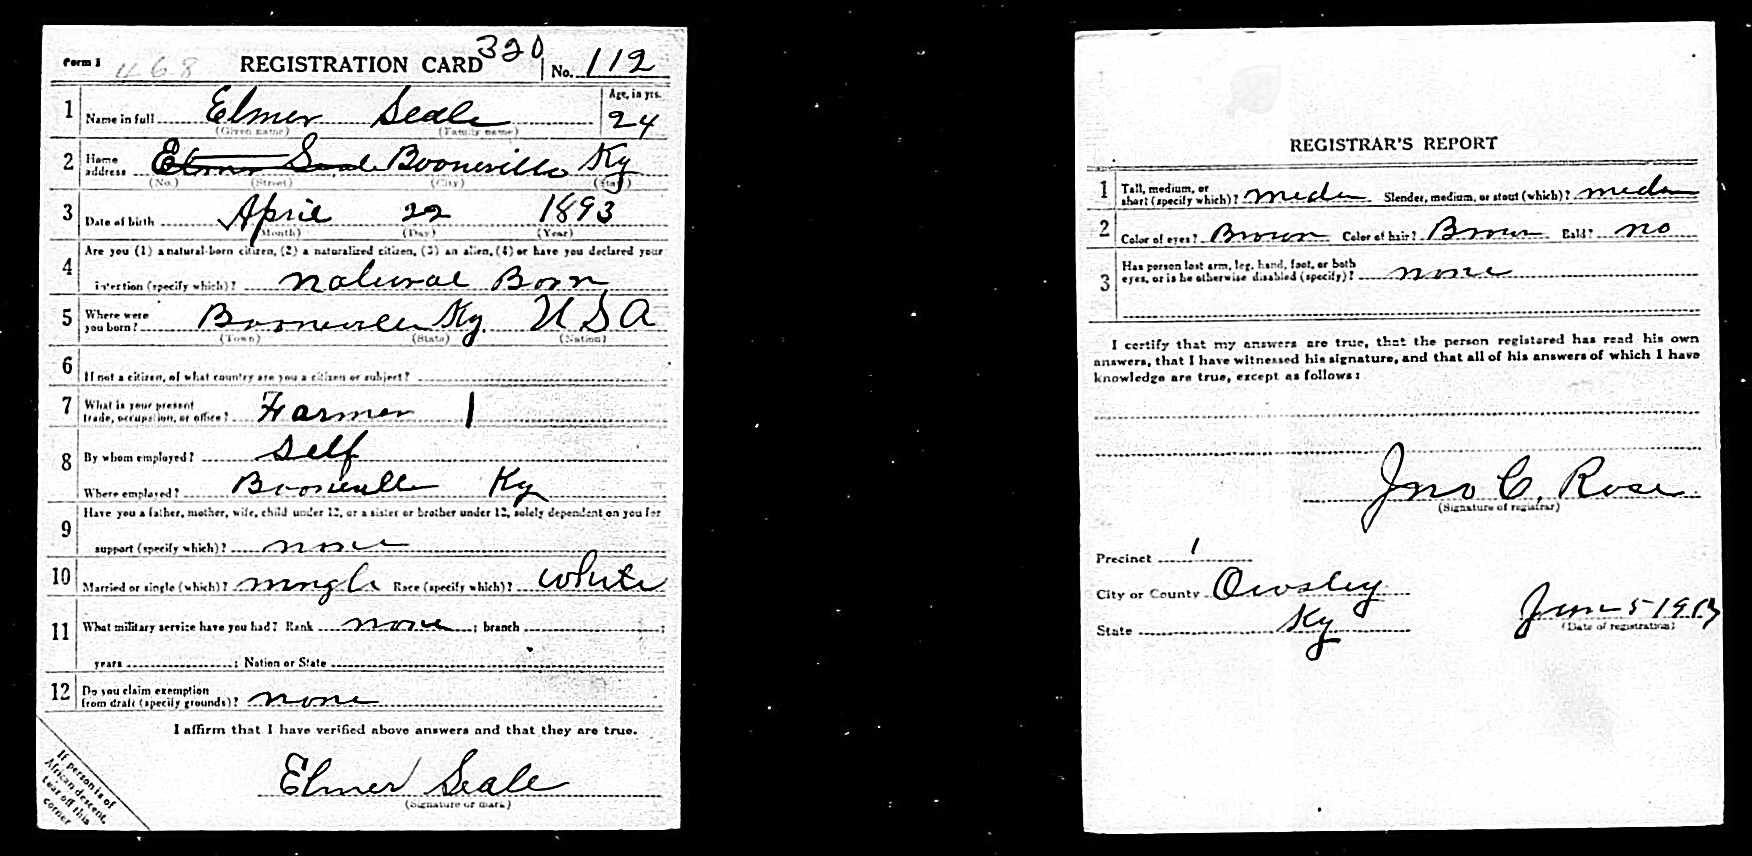 Form 1 468 REGISTRATION CARD 320 No. 112
1 Name in full Elmer Seale Age, in yrs. 24
(Given name) (Family name)
2 Home address Elmer Seale Booneville Ky
(No.) (Street) (City) (State)
3 Date of birth April 22 1893
(Month) (Day) (Year)
4 Are you (1) a natural-born citizen, (2) a naturalized citizen, (3) an alien, (4) or have you declared your
intention (specify which)? natural Born
5 Where were you born? Booneville Ky USA
(Town) (State) (Nation)
6 If not a citizen, of what country are you a citizen or subject?
7 What is your present
trade, occupation, or office? Farmer 1
8 By whom employed? Self
Where employed? Booneville Ky
9 Have you a father, mother, wife, child under 12, or a sister or brother under 12, solely dependent on you for
support (specify which)? none
10 Married or single (which)? single Race (specify which)? white
11 What military service have you had? Rank none ; branch ;
years ; Nation or State
12 Do you claim exemption
from draft (specify grounds)? none
I affirm that I have verified above answers and that they are true.
Elmer Seale
(Signature or mark)
If person is of
African descent,
tear off this
corner
REGISTRAR'S REPORT
1 Tall, medium, or
short (specify which)? medium Slender, medium, or stout (which)? medium
2 Color of eyes? Brown Color of hair? Brown Bald? no
3 Has person lost arm, leg, hand, foot, or both
eyes, or is he otherwise disabled (specify)? none
I certify that my answers are true, that the person registered has read his own
answers, that I have witnessed his signature, and that all of his answers of which I have
knowledge are true, except as follows:
Jno C. Rose
(Signature of registrar)
Precinct 1
City or County Owsley
State Ky June 5 1917
(Date of registration)